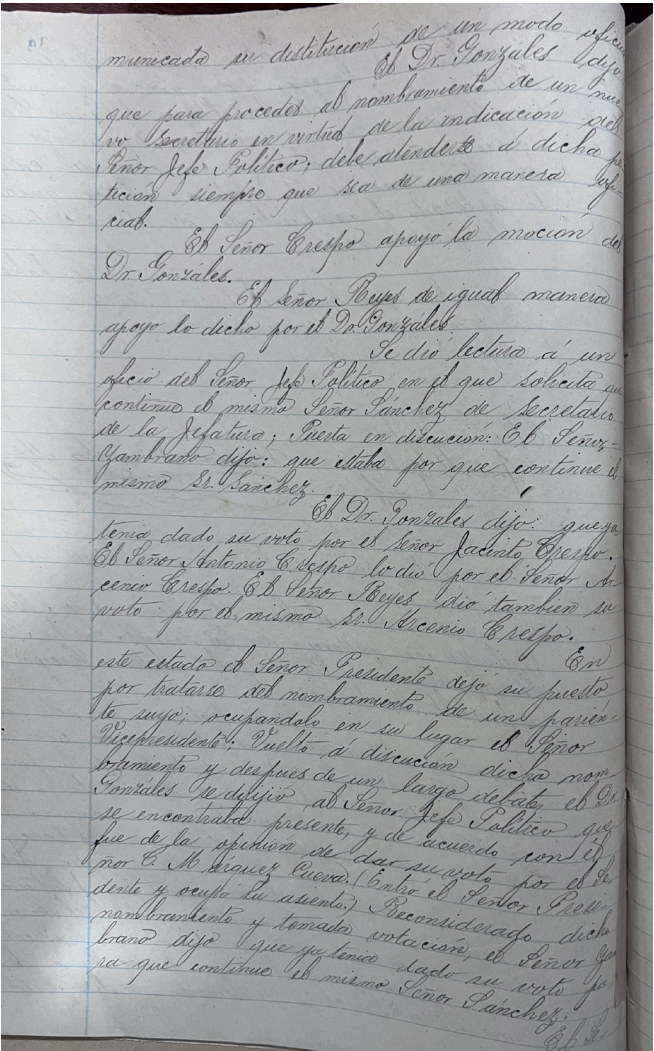 municada su distitucion de un modo oficial
El Dr. Gonzales dijo
que para proceder al nombramiento de un nue
vo secretario en virtud de la indicación del
Señor Jefe Político; debe atenderse á dicha pe
ticion siempre que sea de una manera ofi-
cial.
El Señor Crespo apoyó la moción del
Dr. Gonzáles.
El Señor Reyes de igual manera
apoyo lo dicho por el Dr. Gonzáles.
Se dió lectura á un
oficio del Señor Jefe Político en el que solicita que
continue el mismo Señor Sánchez de secretario
de la Jefatura; Puesta en discución: El Señor-
Zambrano dijo: que estaba por que continue el
mismo Sr. Sánchez.
El Dr. Gonzales dijo: que ya
tenia dado su voto por el Señor Jacinto Crespo.
El Señor Antonio Crespo lo dió por el Señor Ar
cenio Crespo. El Señor Reyes, dió tambien su
voto por el mismo Sr. Arcenio Crespo.
En
este estado el Señor Presidente dejó su puesto
por tratarse del nombramiento de un parién-
te suyo; ocupandolo en su lugar el Señor
Vicepresidente; Vuelto á discucion dicho nom
bramiento y despues de un largo debate, el Dr.
Gonzáles se dirijió al Señor Jefe Político que
se encontraba presente, y de acuerdo con él
fue de la opinion de dar su voto por el Se
ñor C. Márquez Cueva. (Entro el Señor Presi-
dente y ocupó su asiento.) Reconsiderado dicho
nombramiento y tomada votacion, el Señor Zam
brano dijo que ya tenia dado su voto pa
ra que continue el mismo Señor Sánchez.
El Se